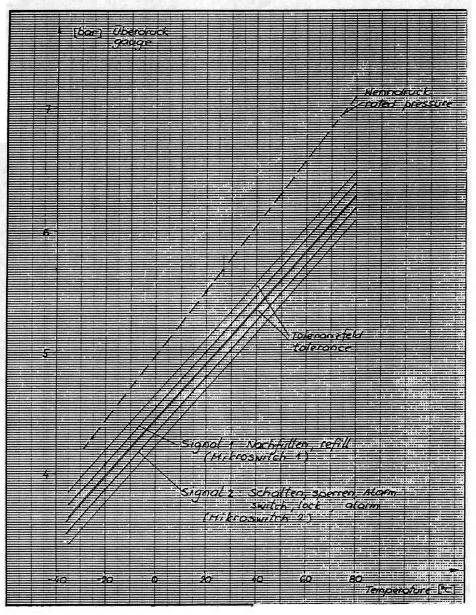 [bar] Überdruck
gauge
7
Nenndruck
rated pressure
6
Toleranzfeld
tolerance
5
Signal 1: Nachfüllen, refill
(Mikroswitch 1)
4
Signal 2: Schalten, sperren, Alarm
switch, lock, alarm
(Mikroswitch 2)
-40 -20 0 20 40 60 80
Temperature [°C]